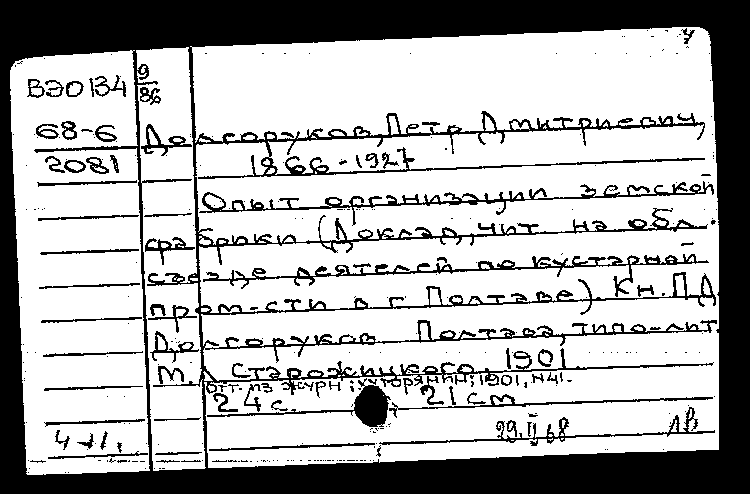 ВЭ0134 9/86
68-6 Долгоруков, Петр Дмитриевич,
2081 1866-1927
Опыт организации земской
фабрики (Доклад, чит на обл.
съезде деятелей по кустарной
пром-сти в г Полтаве). Кн. П.Д.
Долгоруков Полтава, типо-лит.
М.Л Старожицкого, 1901
Отт. из журн "Хуторянин", 1901, N41.
24 с. 21 см
29.II 68 ЛВ